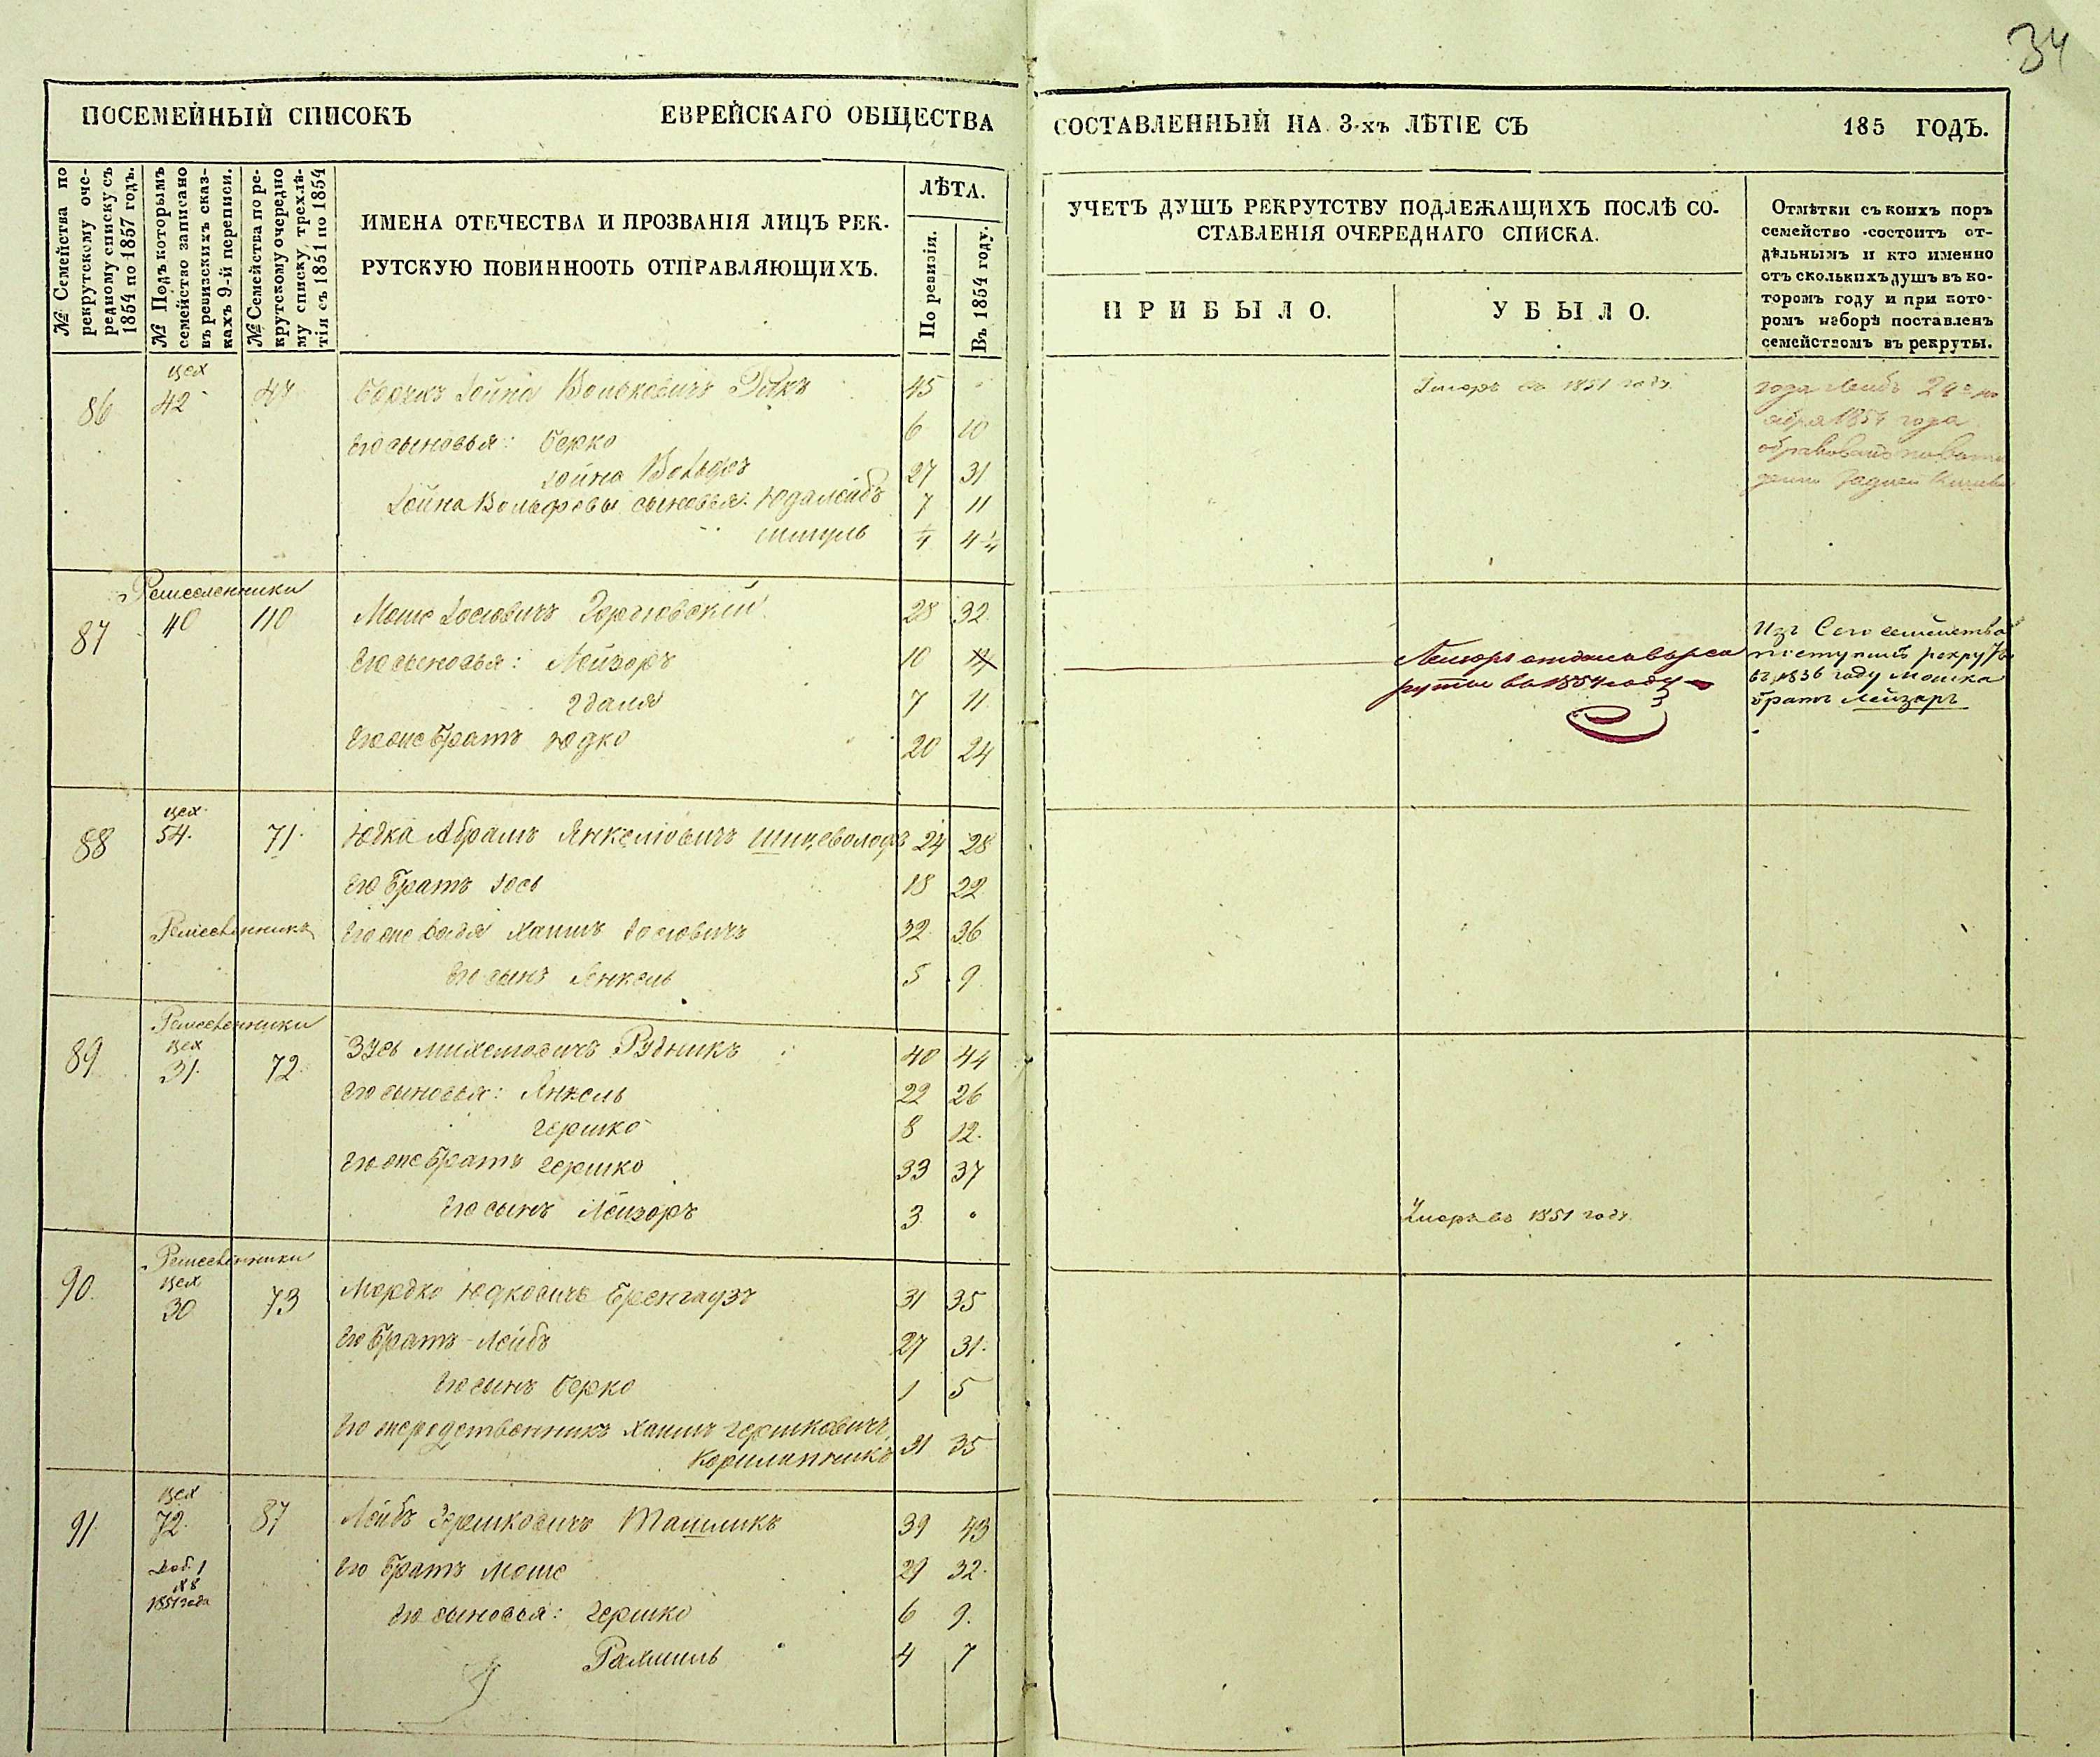 34
ПОСЕМЕЙНЫЙ СПИСОКЪ ЕВРЕЙСКАГО ОБЩЕСТВА СОСТАВЛЕННЫЙ НА 3-хъ ЛѢТІЕ СЪ 185 ГОДЪ.
№ Семейства по
рекрутскому оче-
редному списку съ
1854 по 1857 годъ.
№ Подъ которымъ
семейство записано
въ ревизскихъ сказ-
кахъ 9-й переписи.
№ Семейства по ре-
крутскому очередно
му списку трехлѣ-
тія съ 1851 по 1854
ИМЕНА ОТЕЧЕСТВА И ПРОЗВАНІЯ ЛИЦЪ РЕК-
РУТСКУЮ ПОВИННООТЬ ОТПРАВЛЯЮЩИХЪ.
ЛѢТА.
По ревизіи.
Въ 1854 году.
УЧЕТЪ ДУШЪ РЕКРУТСТВУ ПОДЛЕЖАЩИХЪ ПОСЛѢ СО-
СТАВЛЕНІЯ ОЧЕРЕДНАГО СПИСКА.
ПРИБЫЛО.
УБЫЛО.
Отмѣтки съ коихъ поръ
семейство состоитъ от-
дѣльнымъ и кто именно
отъ сколькихъ душъ въ ко-
торомъ году и при кото-
ромъ наборѣ поставленъ
семействомъ въ рекруты.
цех
86 42 47 Іойна Вольковичъ 45 Умеръ въ 1851 году
Его сыновья: Берко 6 10
Іойна Вольфъ 27 31
Іойна Вольфовы сыновья: Юдалейбъ 7 11
Шмуль 1/4 4 1/4
года Лейбъ
1854 года
Ремесленники
87 40 110 Моше Іосіовичъ 28 32
Его сыновья: Лейзоръ 10 14
Эдаля 7 11
Его же братъ Юдко 20 24
Лейзоръ отданъ въ рек
руты въ 1854 году
Изъ Сего семейства
поступилъ рекрутъ
въ 1836 году Мошка
братъ Лейзаръ
цех
88 54. 71. Юдка Абрамъ Янкеліовичъ 24 28
Его братъ Іось 18 22
Ремесленникъ Его же дядя Хаимъ Іосіовичъ 32 36
Его сынъ Янкель 5 9
Ремесленники
цех
89 31. 72. Зусь Михелевичъ Рудникъ 40 44
Его сыновья: Янкель 22 26
Гершко 8 12.
Его же братъ Гершко 33 37
Его сынъ Лейзоръ 3 Умеръ въ 1851 году.
Ремесленники
цех
90. 30 73 Мордко Юдковичъ Бренгаузъ 31 35
Его братъ Лейбъ 27 31.
Его сынъ Берко 1 5
Его же родственникъ Хаимъ Гершковичъ
31 35
цех
91. 72. 87 Лейбъ Гершковичъ Ташликъ 39 43
Доб. 1
№ 8
1851 года
Его братъ Моше 29 32.
Его сыновья: Гершко 6 9.
Рахмиль 4 7